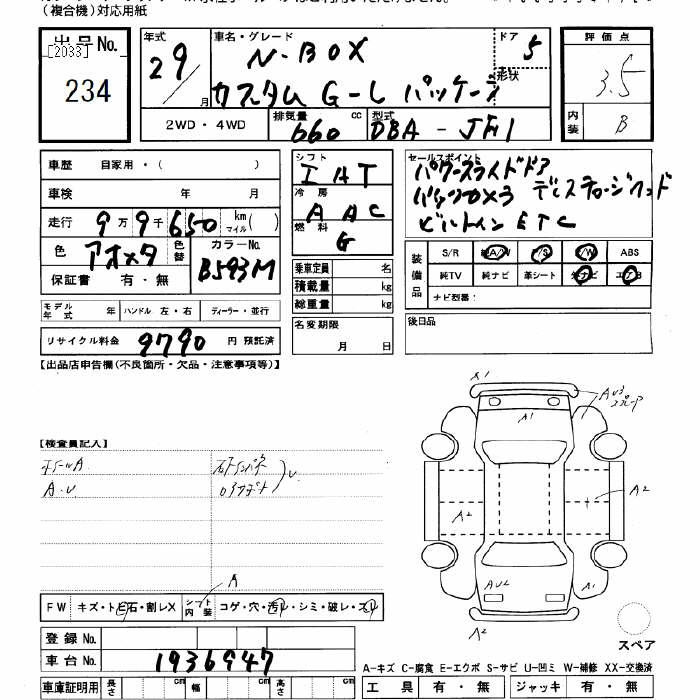 (複合機)対応用紙
出品No.
[2033]
234
年式
29
月
車名・グレード
N-BOX
カスタム G-L パッケージ
ドア
5
形状
評価点
3.5
内装
B
2WD・4WD
排気量
660
cc
型式
DBA-JF1
車歴 自家用・( )
車検 年 月
走行 9万9千650 km マイル( )
色 アオメタ
色替
カラーNo.
B593M
保証書 有・無
シフト
IAT
冷房
AAC
燃料
G
乗車定員 名
積載量 kg
総重量 kg
セールスポイント
パワースライドドア
ビルトイン ETC
装備品
S/R 純A/W P/S P/W ABS
純TV 純ナビ 革シート エアB
ナビ型番:
モデル年式 年 ハンドル 左・右 ディーラー・並行
名変期限
月 日
後日品
リサイクル料金 9790 円 預託済
【出品店申告欄(不良箇所・欠品・注意事項等)】
【検査員記入】
A・U
A
X1
A1
AU3
A2
A2
AU2
A1
A2
FW キズ・トビ石・割レX
シフト
内装
コゲ・穴・汚レ・シミ・破レ・スレ
スペア
登録No.
車台No. 1936947
A-キズ C-腐食 E-エクボ S-サビ U-凹ミ W-補修 XX-交換済
車庫証明用 長さ cm 幅 cm 高さ cm
工具 有・無 ジャッキ 有・無